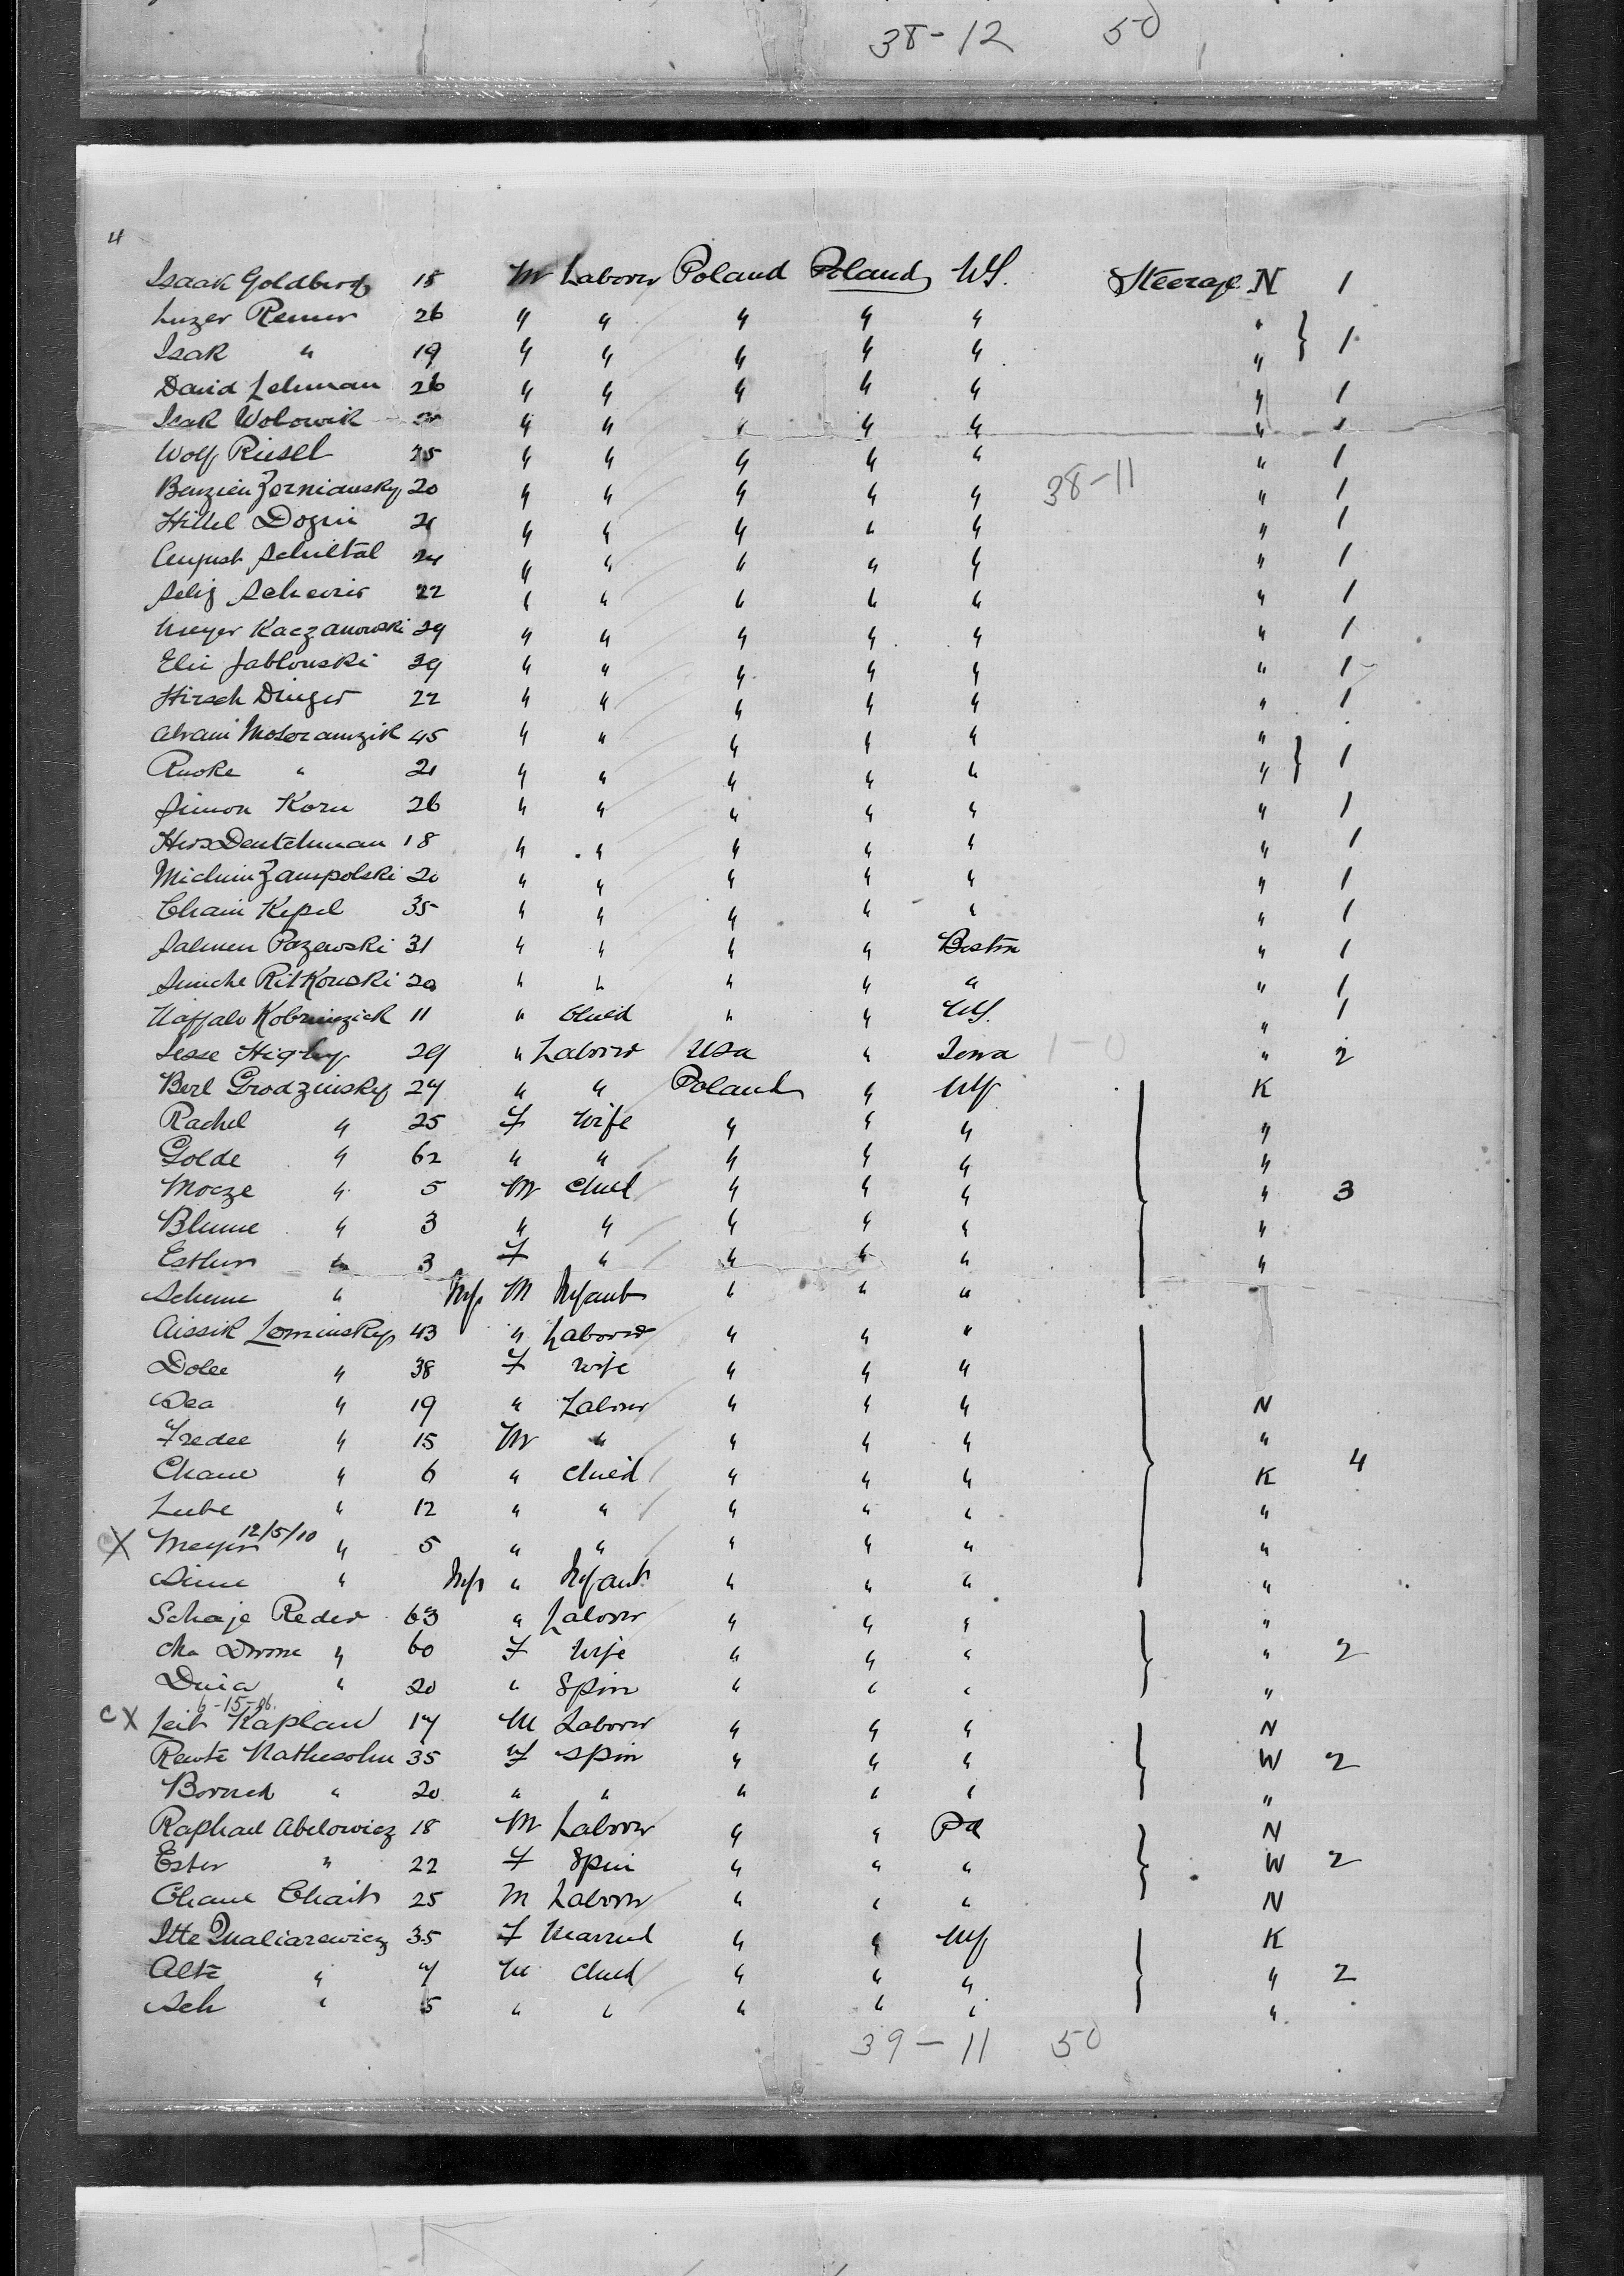 38-12 50
4
Isaak Goldberg 18 M Laborer Poland Poland NY. Steerage N 1
Luzer Remer 26 " " " " " "
Isak " 19 " " " " " " } 1
David Lehman 26 " " " " " " 1
Isak Wolowik " " " " " " 1
Wolf Riesel 25 " " " " " " 1
Benzien Zerniansky 20 " " " " " 38-11 " 1
Hillel Dogin 21 " " " " " " 1
August Schiltal 24 " " " " " " 1
Selig 22 " " " " " " 1
Meyer Kaczanowski 29 " " " " " " 1
Elie Jablonski 39 " " " " " " 1
Hirsch Dinger 22 " " " " " " 1
Abram 45 " " " " " "
" 21 " " " " " " } 1
Simon Korn 26 " " " " " " 1
Hersz Deutchman 18 " " " " " " 1
Zampolski 20 " " " " " " 1
Chaim Kepel 35 " " " " " " 1
Salmen Pazewski 31 " " " " Boston " 1
Simche Ritkowski 20 " " " " " " 1
11 " Child " " NY. " 1
Jesse Higby 29 " Laborer USA " Iowa 1-0 " 2
Berl Grodzinsky 24 " " Poland " NY K
Rachel " 25 F Wife " " " "
Golde " 62 " " " " " "
Mocze " 5 M Child " " " " 3
Blume " 3 " " " " " "
Esther " 3 F " " " " "
Scheme " Inf M Infant " " "
Aissik Lominsky 43 " Laborer " " "
Dolee " 38 F Wife " " "
Dea " 19 " Laborer " " " N
Fredee " 15 M " " " " "
Chane " 6 " Child " " " K 4
Lube " 12 " " " " " "
CX Meyer 12/5/10 " 5 " " " " " "
Sime " Inf " Infant " " " "
Schaje Reder 63 " Laborer " " " "
Cha Dwore " 60 F Wife " " " " 2
Dina " 20 " Spin " " " "
6-15-06.
CX Leib Kaplan 17 M Laborer " " " N
Nathesohn 35 F Spin " " " W 2
Boruch " 20 " " " " " "
Raphael Abelowicz 18 M Laborer " " Pa N
Ester " 22 F Spin " " " W 2
Chane Chait 25 M Laborer " " " N
Itte 35 F Married " " NY K
Alte " 7 M Child " " " " 2
Sch " 5 " " " " " "
39-11 50